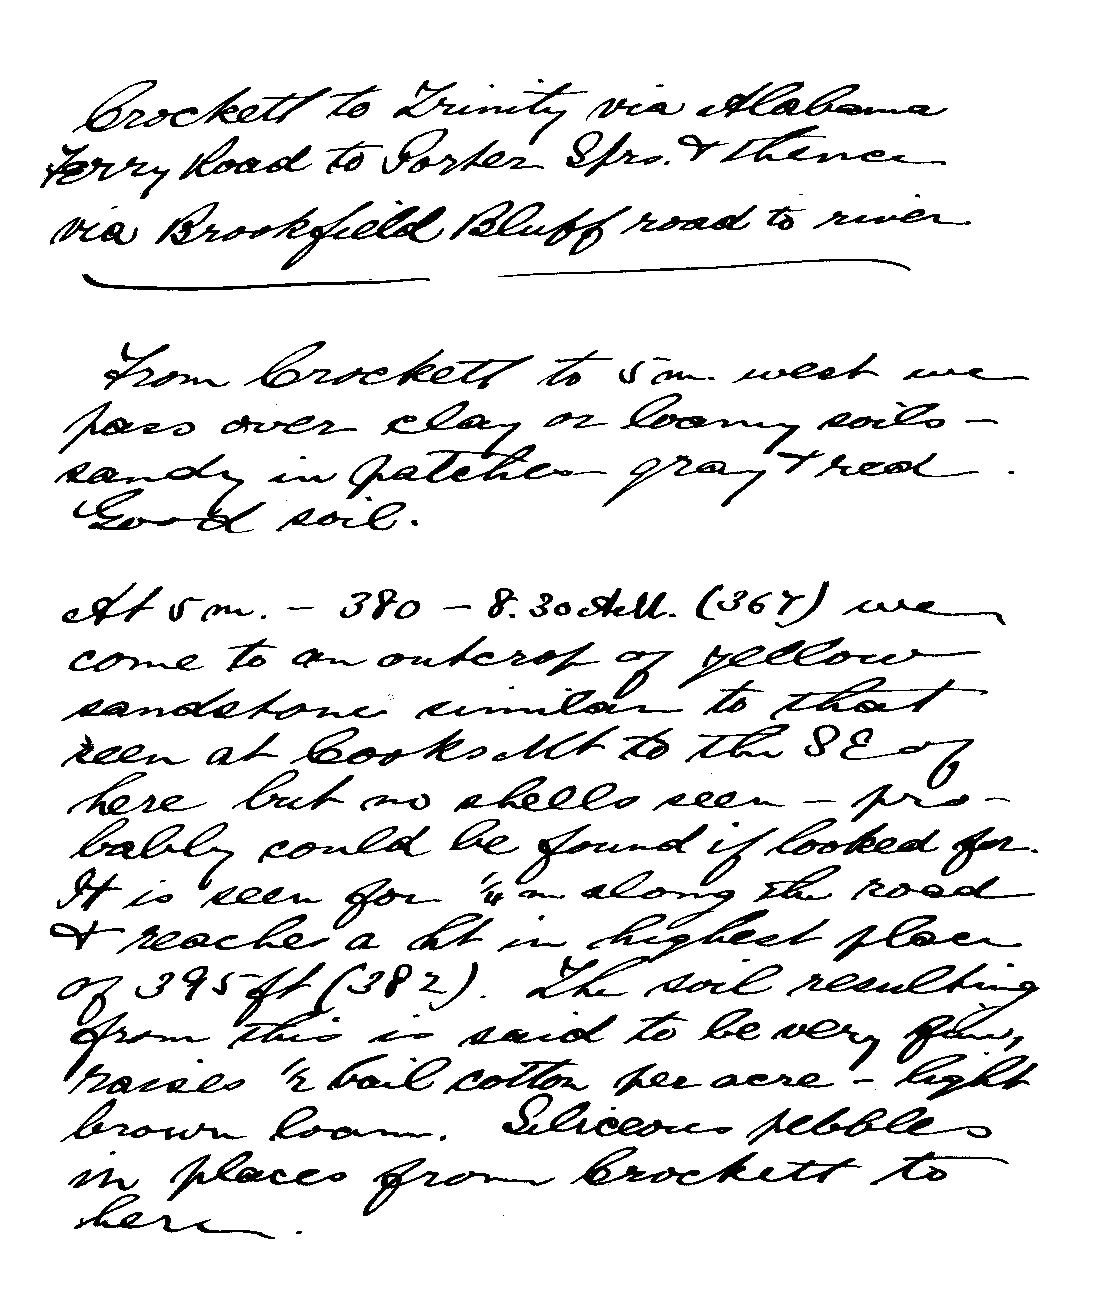 Crockett to Trinity via Alabama
Ferry Road to Porter Sprs. & thence
via Brookfield Bluff road to river
From Crockett to 5 m. west we
pass over clay or loamy soils -
sandy in patches gray & red.
Good soil.
At 5 m. - 380 - 8.30 A.M. (367) we
come to an outcrop of yellow
sandstone similar to that
seen at Cooks Mt to the SE of
here but no shells seen - pro-
bably could be found if looked for.
It is seen for 1/4 m along the road
& reaches a ht in highest place
of 395 ft (382). The soil resulting
from this is said to be very fine,
raises 1/2 bail cotton per acre - light
brown loam. Siliceous pebbles
in places from Crockett to
here.